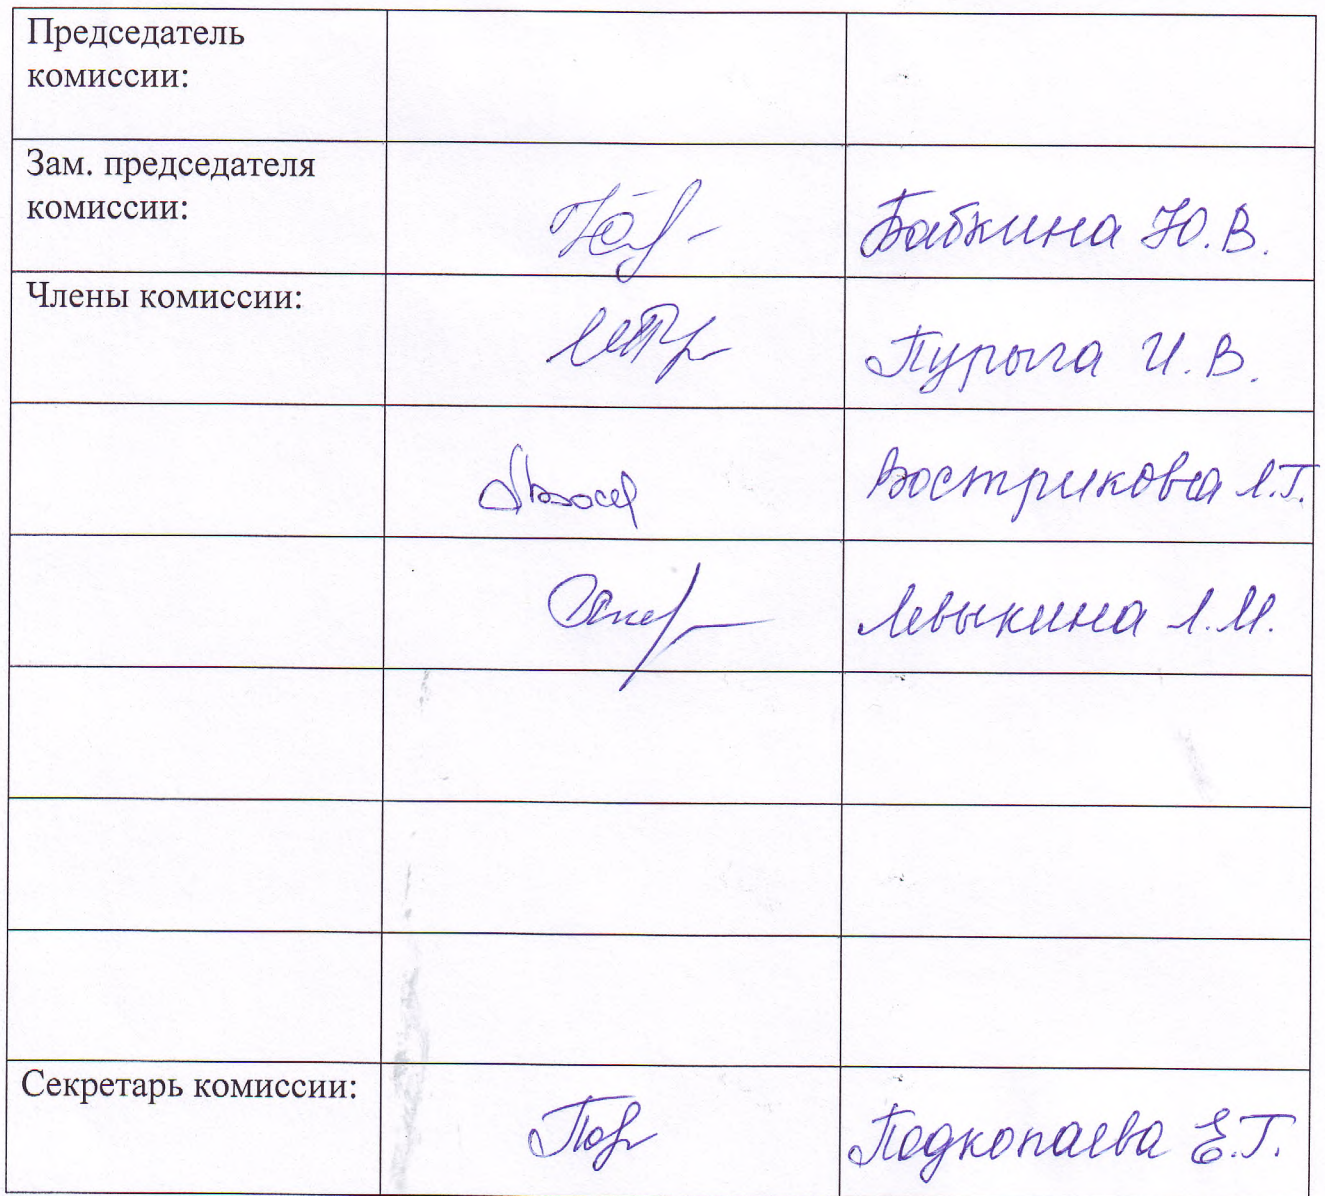 Председатель
комиссии:
Зам. председателя
комиссии:
Бабкина Ю.В.
Члены комиссии:
Пурыга И.В.
Вострикова Л.Г.
Левыкина Л.М.
Секретарь комиссии:
Подкопаева Е.Г.